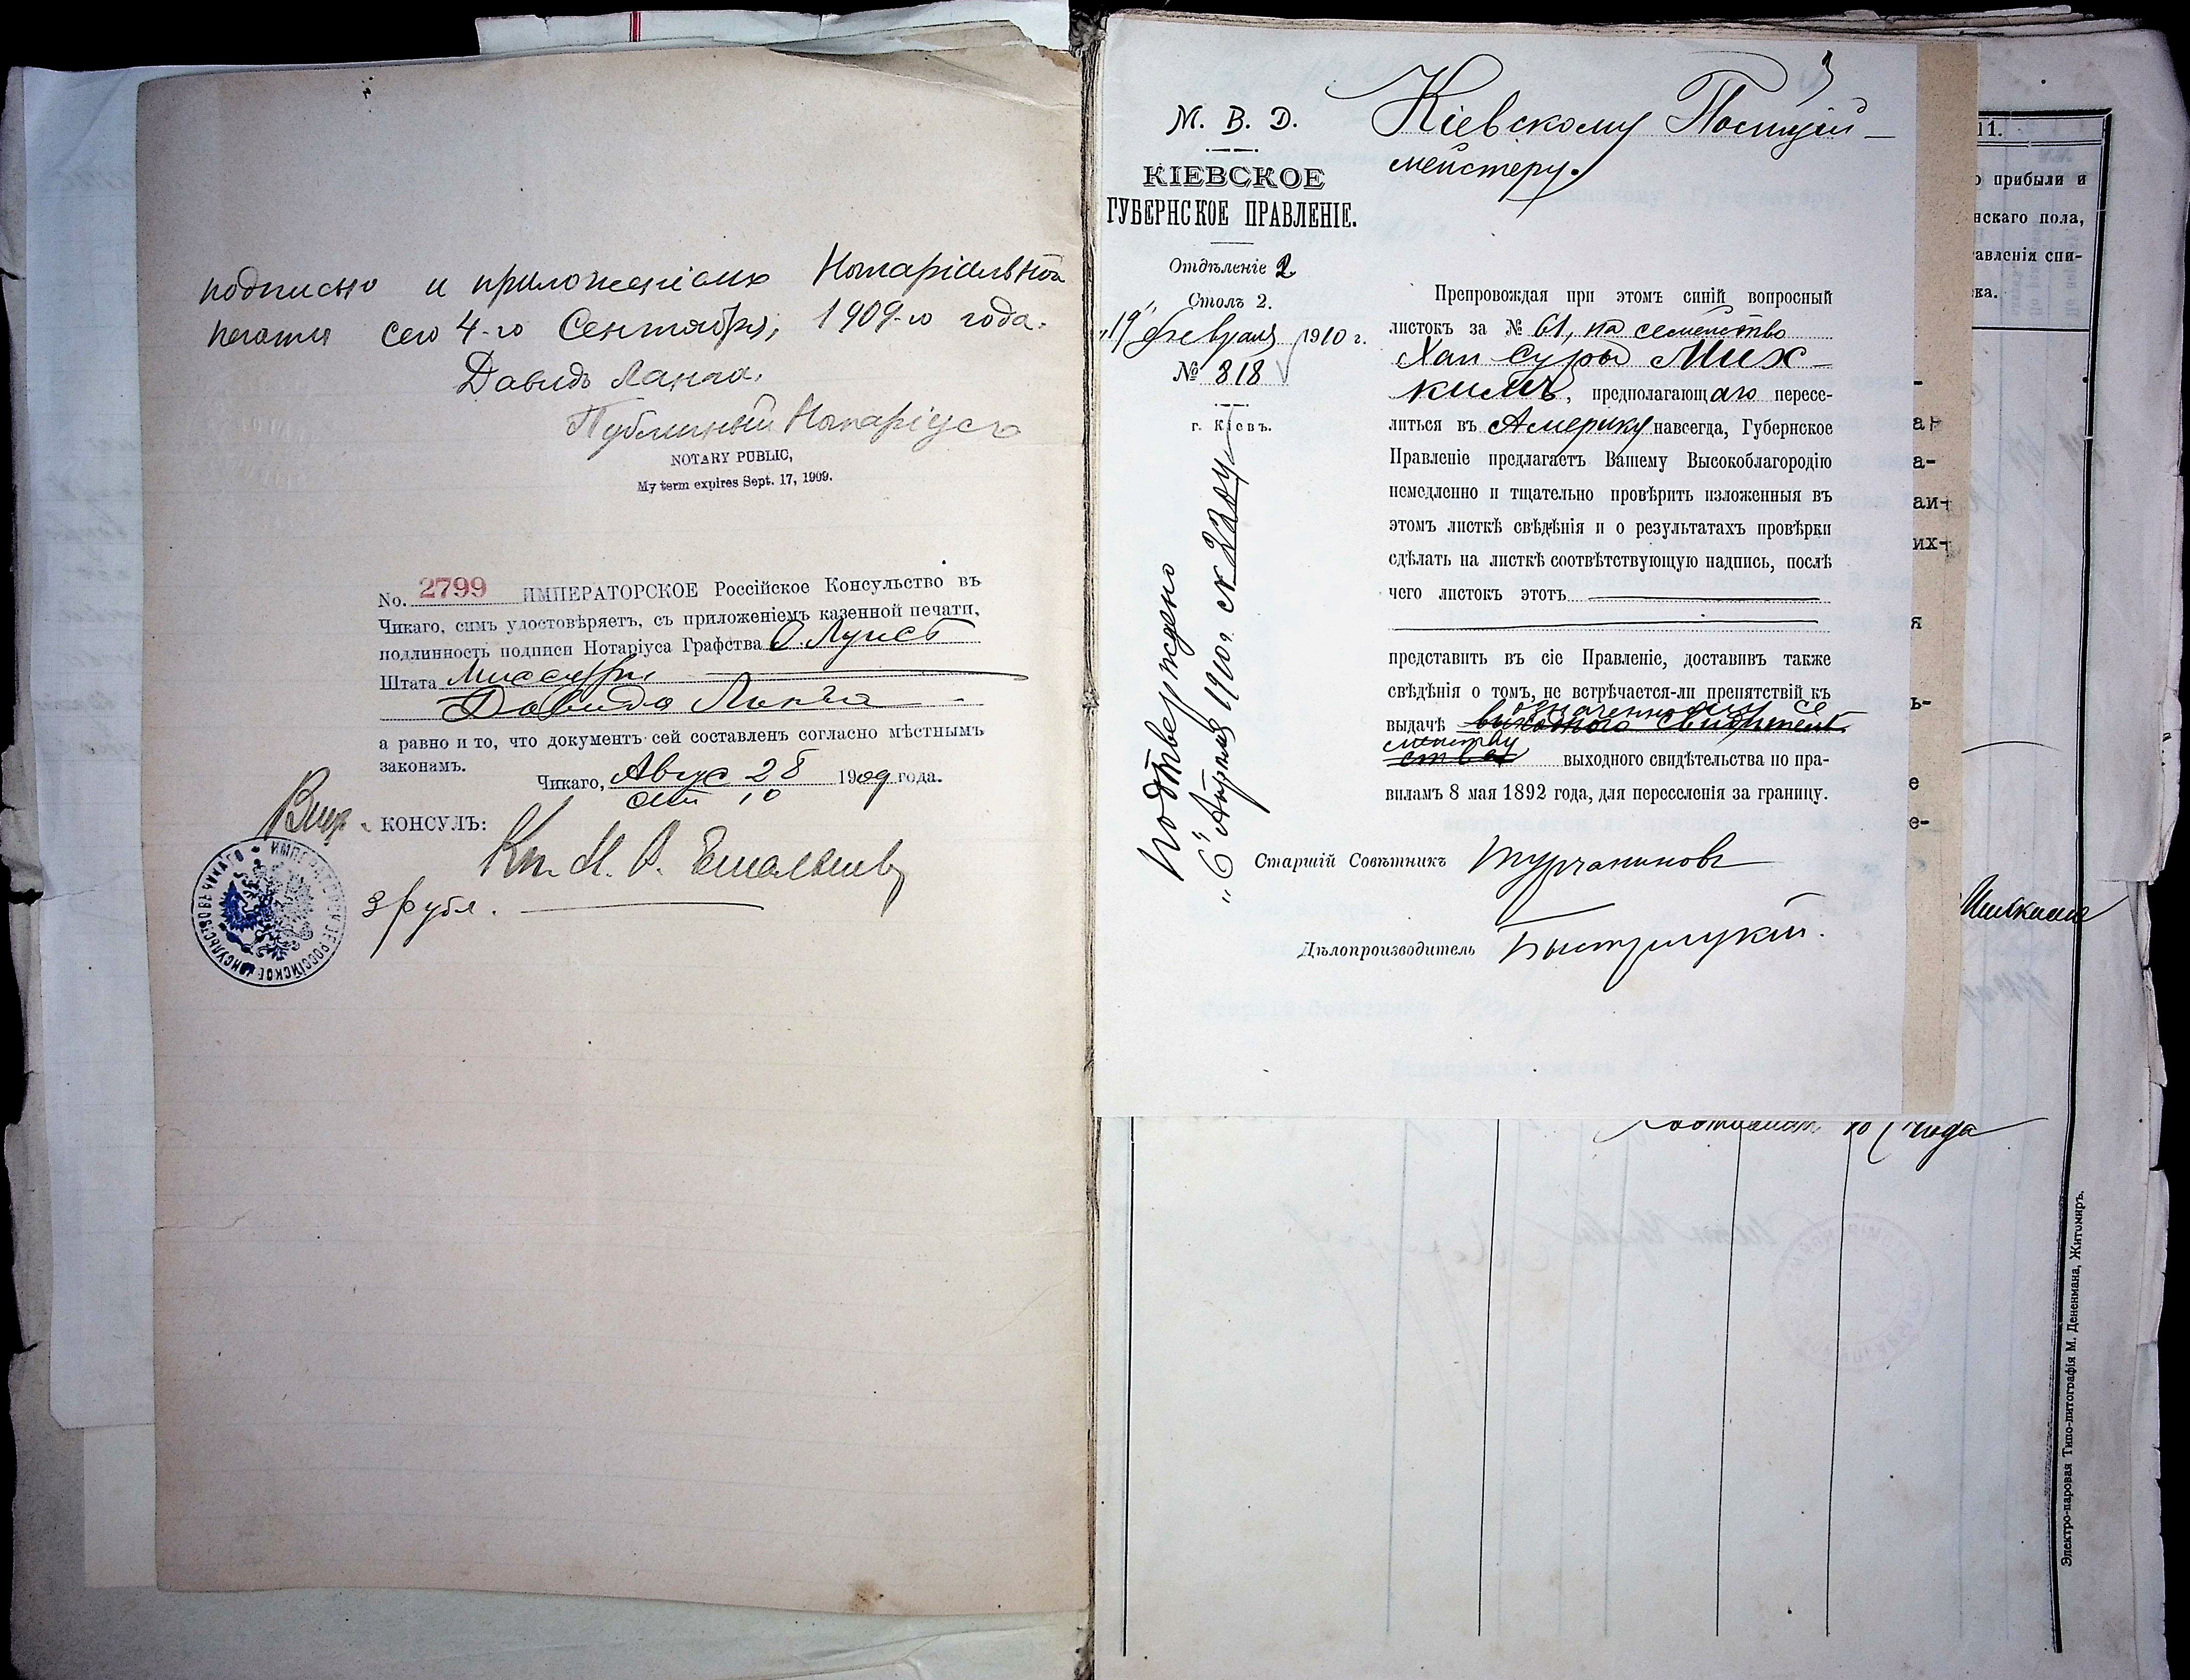 подписью и приложеніемъ Нотаріальной
печати сего 4-го Сентября, 1909-го года.
Давидъ Ланча.
Публичный Нотаріусъ
NOTARY PUBLIC,
My term expires Sept. 17, 1909.
No. 2799 ИМПЕРАТОРСКОЕ Россійское Консульство въ
Чикаго, симъ удостовѣряетъ, съ приложеніемъ казенной печати,
подлинность подписи Нотаріуса Графства С. Луисъ
Штата Миссури
Давида Ланча
а равно и то, что документъ сей составленъ согласно мѣстнымъ
законамъ.
Чикаго, Авгус 28 1909 года.
Сен 10
Вице- КОНСУЛЪ:
Кн. Н. В.
3 рубл.
ИМПЕРАТОРСКОЕ РОССІЙСКОЕ КОНСУЛЬСТВО ВЪ ЧИКАГО
3
М. В. Д.
КІЕВСКОЕ
ГУБЕРНСКОЕ ПРАВЛЕНІЕ.
Отдѣленіе 2
Столъ 2.
„19" февраля 1910 г.
№ 818
г. Кіевъ.
Подтверждено
„6" Апрѣля 1910 г. № 2204
Кіевскому Полицій-
мейстеру.
Препровождая при этомъ синій вопросный
листокъ за № 61, на семейство
Хаи Суры Мих-
кимъ, предполагающаго пересе-
литься въ Америку навсегда, Губернское
Правленіе предлагаетъ Вашему Высокоблагородію
немедленно и тщательно провѣрить изложенныя въ
этомъ листкѣ свѣдѣнія и о результатахъ провѣрки
сдѣлать на листкѣ соотвѣтствующую надпись, послѣ
чего листокъ этотъ
представить въ сіе Правленіе, доставивъ также
свѣдѣнія о томъ, не встрѣчается-ли препятствій къ
означенному се
выдачѣ выходного свидѣтель
мейству
ства выходного свидѣтельства по пра-
виламъ 8 мая 1892 года, для переселенія за границу.
Старшій Совѣтникъ Турчаниновъ
Дѣлопроизводитель Быстрицкій.
11.
о прибыли и
нскаго пола,
авленія спи-
ка.
года
Электро-паровая Типо-литографія М. Дененмана, Житомиръ.